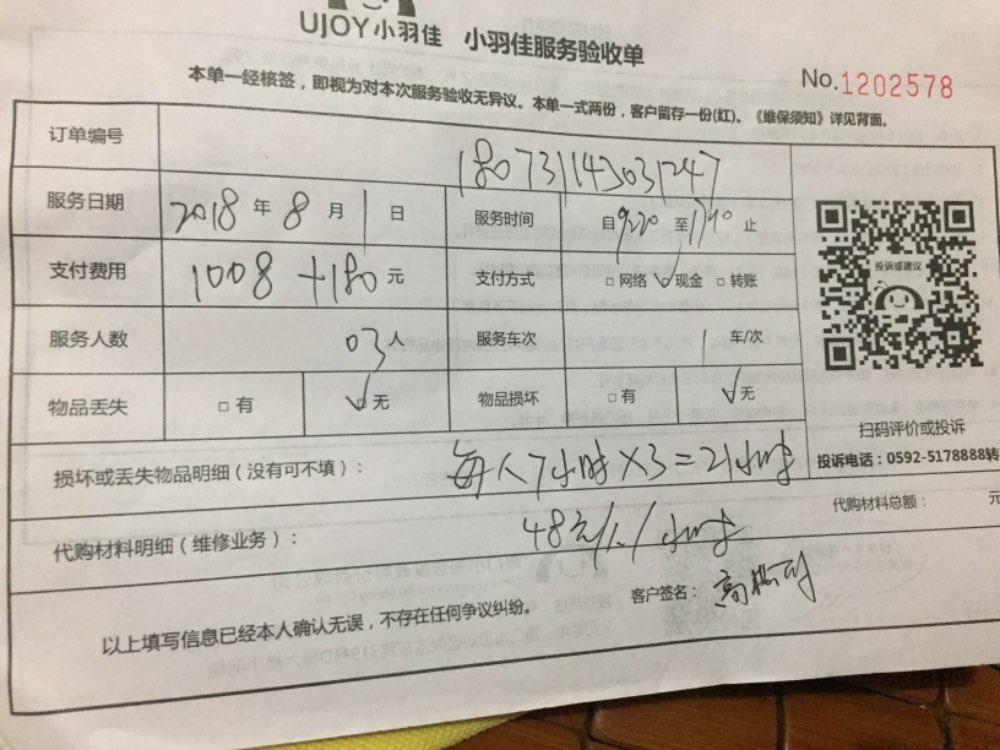 UJOY小羽佳 小羽佳服务验收单
No.1202578
本单一经核签，即视为对本次服务验收无异议。本单一式两份，客户留存一份(红)。《维保须知》详见背面。
订单编号 180731143031247
服务日期 2018 年 8 月 1 日 服务时间 自 920 至 1740 止
支付费用 1008+180 元 支付方式 □网络 ☑现金 □转账
投诉或建议
服务人数 03人 服务车次 1 车/次
物品丢失 □有 ☑无 物品损坏 □有 ☑无
扫码评价或投诉
投诉电话：0592-5178888转
损坏或丢失物品明细（没有可不填）： 每人7小时×3=21小时
代购材料明细（维修业务）： 48元/人/小时 代购材料总额： 元
以上填写信息已经本人确认无误，不存在任何争议纠纷。 客户签名：